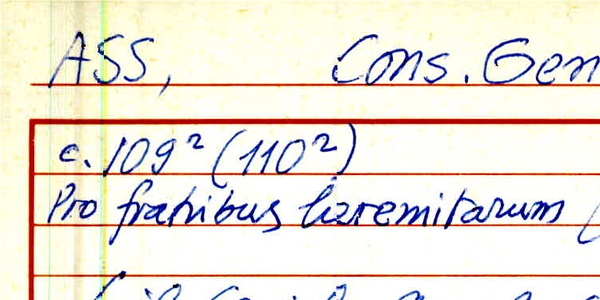 ASS, Cons. Gen
c. 109² (110²)
Pro fratribus haremitarum (